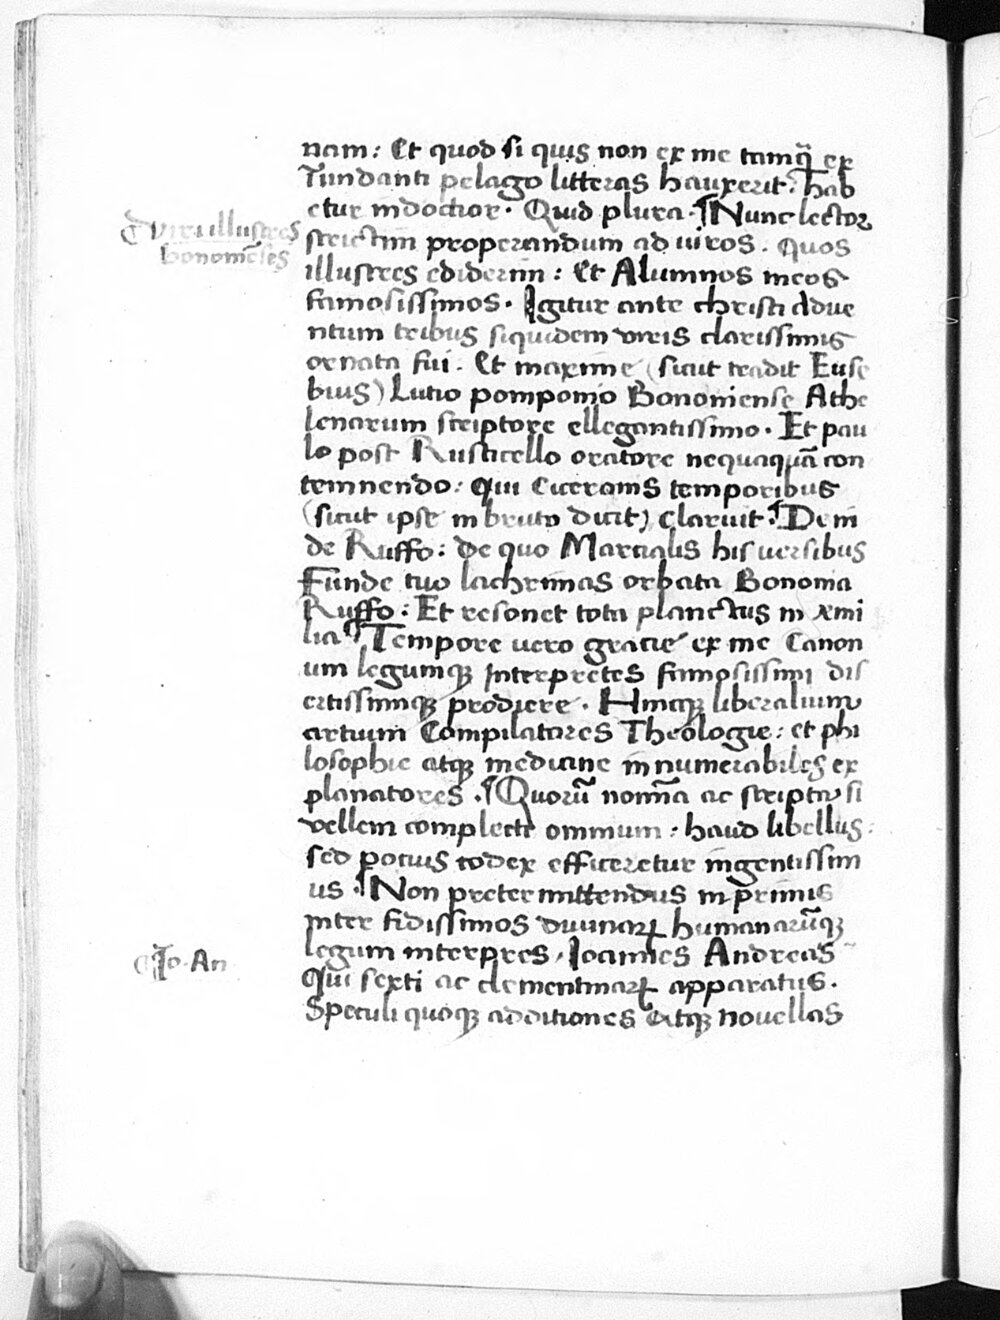 nam: Et quod si quis non ex me tamq̃ ex
fundanti pelago litteras hauxerit: hab
etur indoctior. Quid plura. ¶Nunc lector
¶Viri illustres
bononie͂ses
strictim properandum ad uiros. Quos
illustres ediderim: et Alumnos meos
famosissimos. Igitur ante christi adue
ntum tribus siquidem viris clarissimis
ornata fui. Et maxime (sicut tradit Euse
bius) Lutio pomponio Bononiense Athe
lenarum scriptore ellegantissimo. Et pau
lo post Rusticello oratore nequaquã con
temnendo: Qui Ciceronis temporibus
(sicut ipse in bruto dicit) claruit. ¶Dein
de Ruffo: de quo Martialis his uersibus
Funde tuo lachrimas orbata Bononia
Ruffo: Et resonet tota planctus in xmi
lia ¶Tempore uero gracie ex me Canon
um legumqꝫ interpretes famosissimi dis
ertissimiqꝫ prodiere. Hincqꝫ liberalium
artium Compilatores Theologie: et phi
losophie atqꝫ medicine innumerabiles ex
planatores. ¶Quorũ nomĩa ac scripta si
vellem complecti omnium: haud libellus:
sed potius codex efficeretur ingentissim
us. ¶Non pretermittendus in primis
inter fidissimos diuinarꝝ humanarũqꝫ
legum interpres, Ioannes Andreas
¶Io. An
Qui sexti ac clementinarꝝ apparatus.
Speculi quoqꝫ additiones atqꝫ nouellas